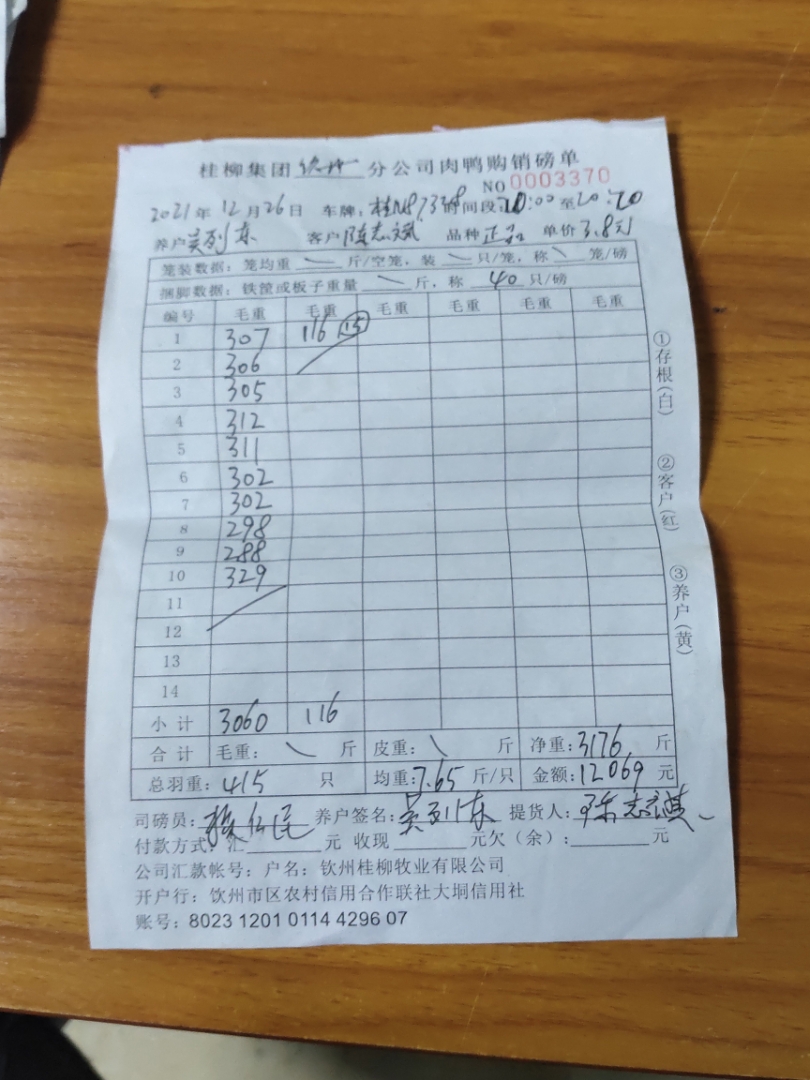 桂柳集团 钦州 分公司肉鸭购销磅单
NO 0003370
2021年 12月26日 车牌: 时间段: 20:00 至 20:20
养户 吴列东 客户 陈志斌 品种 正品 单价 3.8元
笼装数据: 笼均重 \ 斤/空笼, 装 \ 只/笼, 称 \ 笼/磅
捆脚数据: 铁筐或板子重量 \ 斤, 称 40 只/磅
编号 毛重 毛重 毛重 毛重 毛重 毛重
1 307 116 (15)
2 306
3 305
4 312
5 311
6 302
7 302
8 298
9 288
10 329
11
12
13
14
小计 3060 116
合计 毛重: \ 斤 皮重: \ 斤 净重: 3176 斤
总羽重: 415 只 均重: 7.65 斤/只 金额: 12069 元
司磅员: 养户签名: 吴列东 提货人:
付款方式: 汇 元 收现 元欠(余): 元
公司汇款帐号: 户名: 钦州桂柳牧业有限公司
开户行: 钦州市区农村信用合作联社大垌信用社
账号: 8023 1201 0114 4296 07
①存根(白)
②客户(红)
③养户(黄)